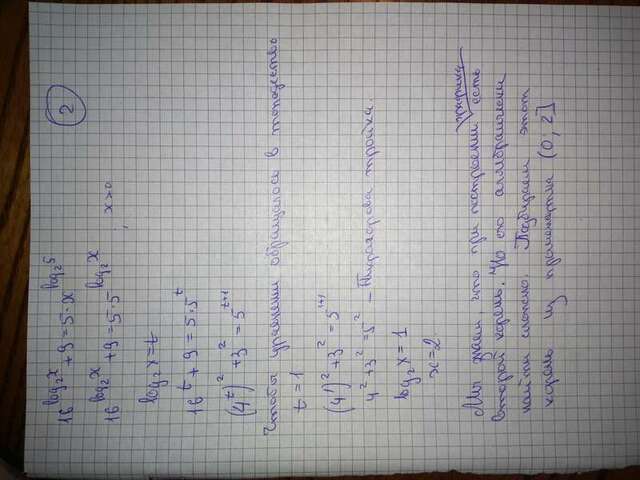 2
16^{log_2 x} + 9 = 5·x^{log_2 5}
16^{log_2 x} + 9 = 5·5^{log_2 x}, x>0
log_2 x = t
16^t + 9 = 5·5^t
(4^t)^2 + 3^2 = 5^{t+1}
Чтобы уравнение обращалось в тождество
t = 1
(4^1)^2 + 3^2 = 5^{1+1}
4^2 + 3^2 = 5^2 – Пифагорова тройка.
log_2 x = 1
x = 2.
Мы знаем что при построении графика есть
второй корень, но его алгебраически
найти сложно. Подбираем этот
корень из промежутка (0; 2]